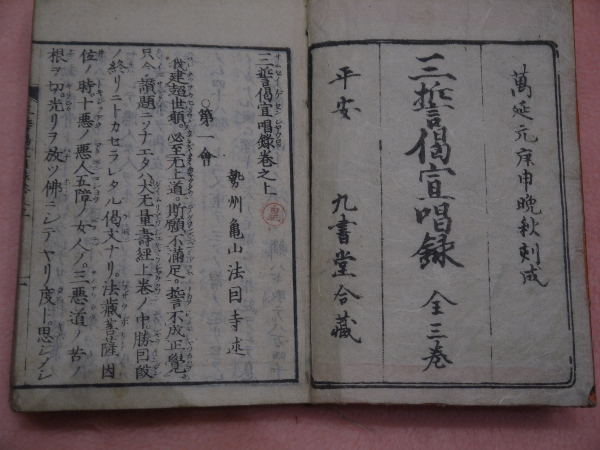 萬延元庚申晩秋刻成
三誓偈宣唱録 全三巻
平安 九書堂合藏
三誓偈宣唱録巻之上
勢州亀山法因寺述
○第一會
我建超世願。必至无上道。斯願不滿足。誓不成正覺
只今讃題ニソナエタハ大无量壽經上巻ノ中勝因段
ノ終リニトカセラレタル偈文ナリ。法藏菩薩因
位ノ時十悪ノ悪人五障ノ女人ノ。三悪道ノ苦ノ
根ヲ切。光リヲ放ツ佛ニシテヤリ度ト。思シメシ